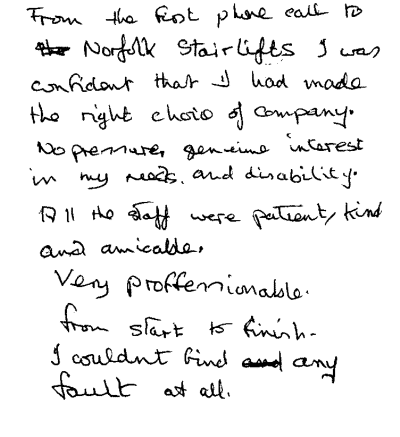 From the first phone call to
Norfolk Stairlifts I was
confident that I had made
the right choio of company.
No pressure, genuine interest
in my needs, and disability.
All the staff were patient, kind
and amicable,
Very proffessionable.
from start to finish.
I couldn't find any
fault at all.